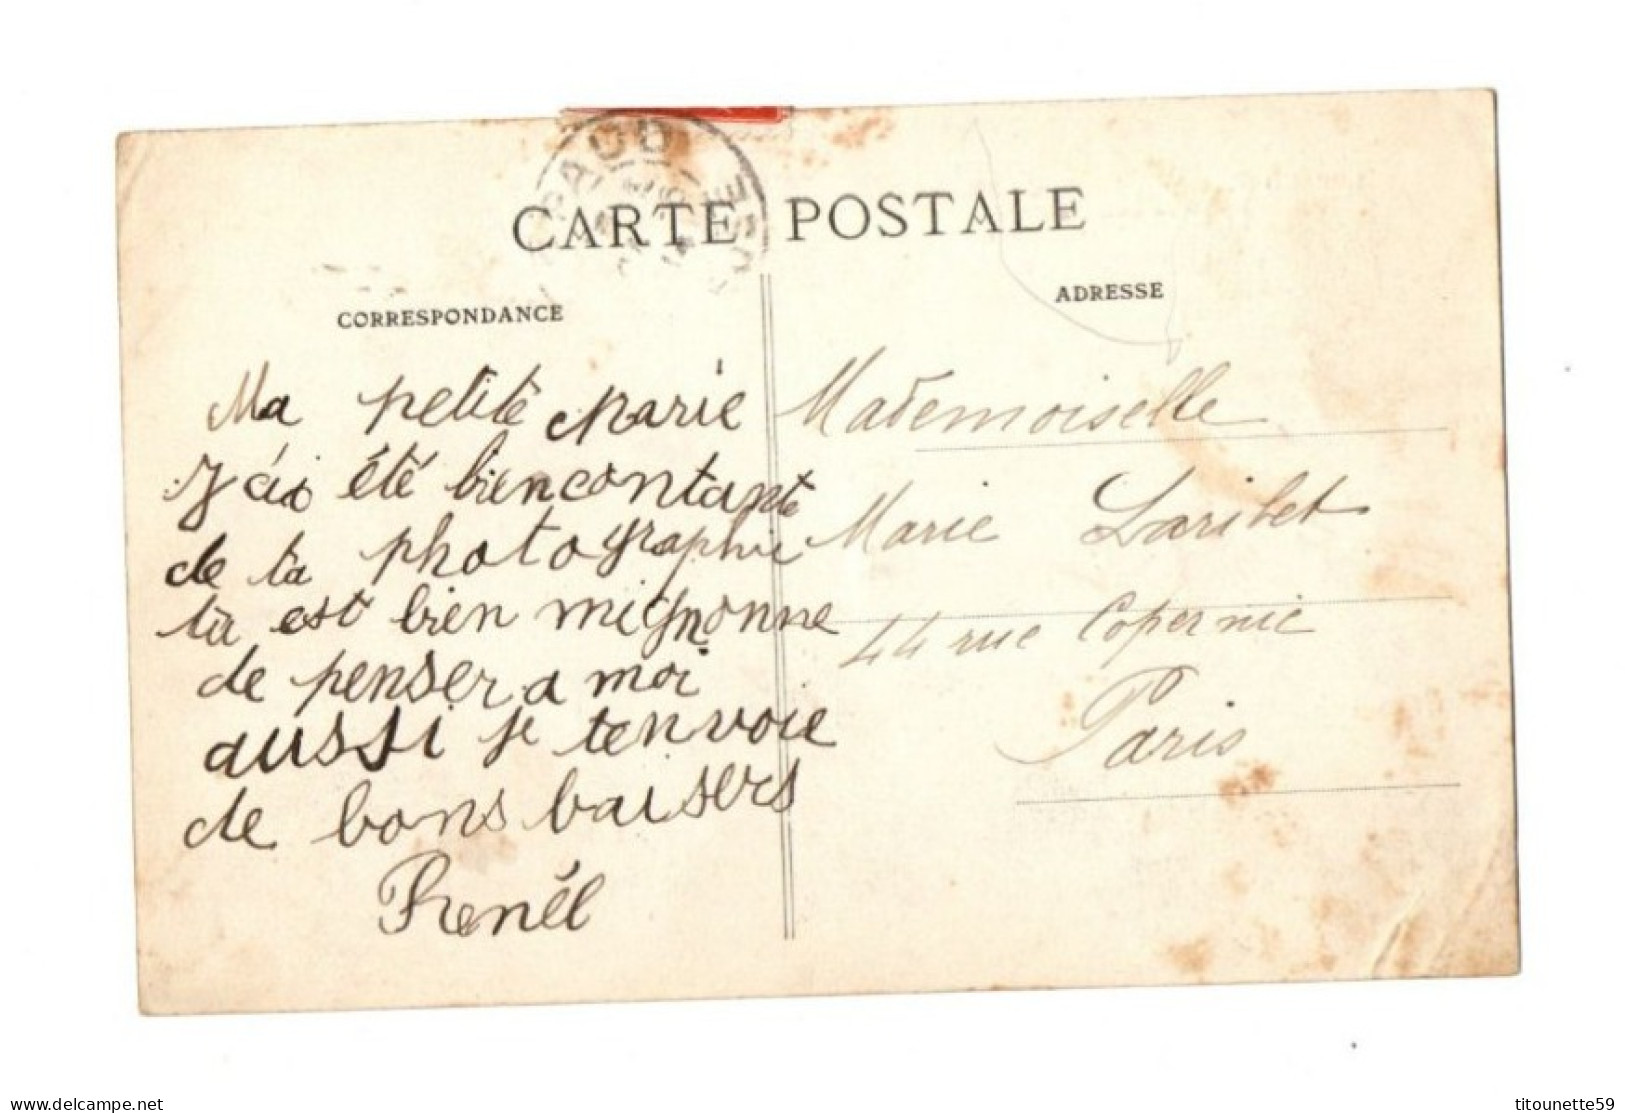 CARTE POSTALE
CORRESPONDANCE
Ma petite Marie
J'ais été bien contante
de ta photographie
tu est bien mignonne
de penser a moi
aussi je tenvoie
de bons baisers
ADRESSE
Mademoiselle
Marie Laribet
44 rue Copernic
Paris
delcampe.net
titounette59